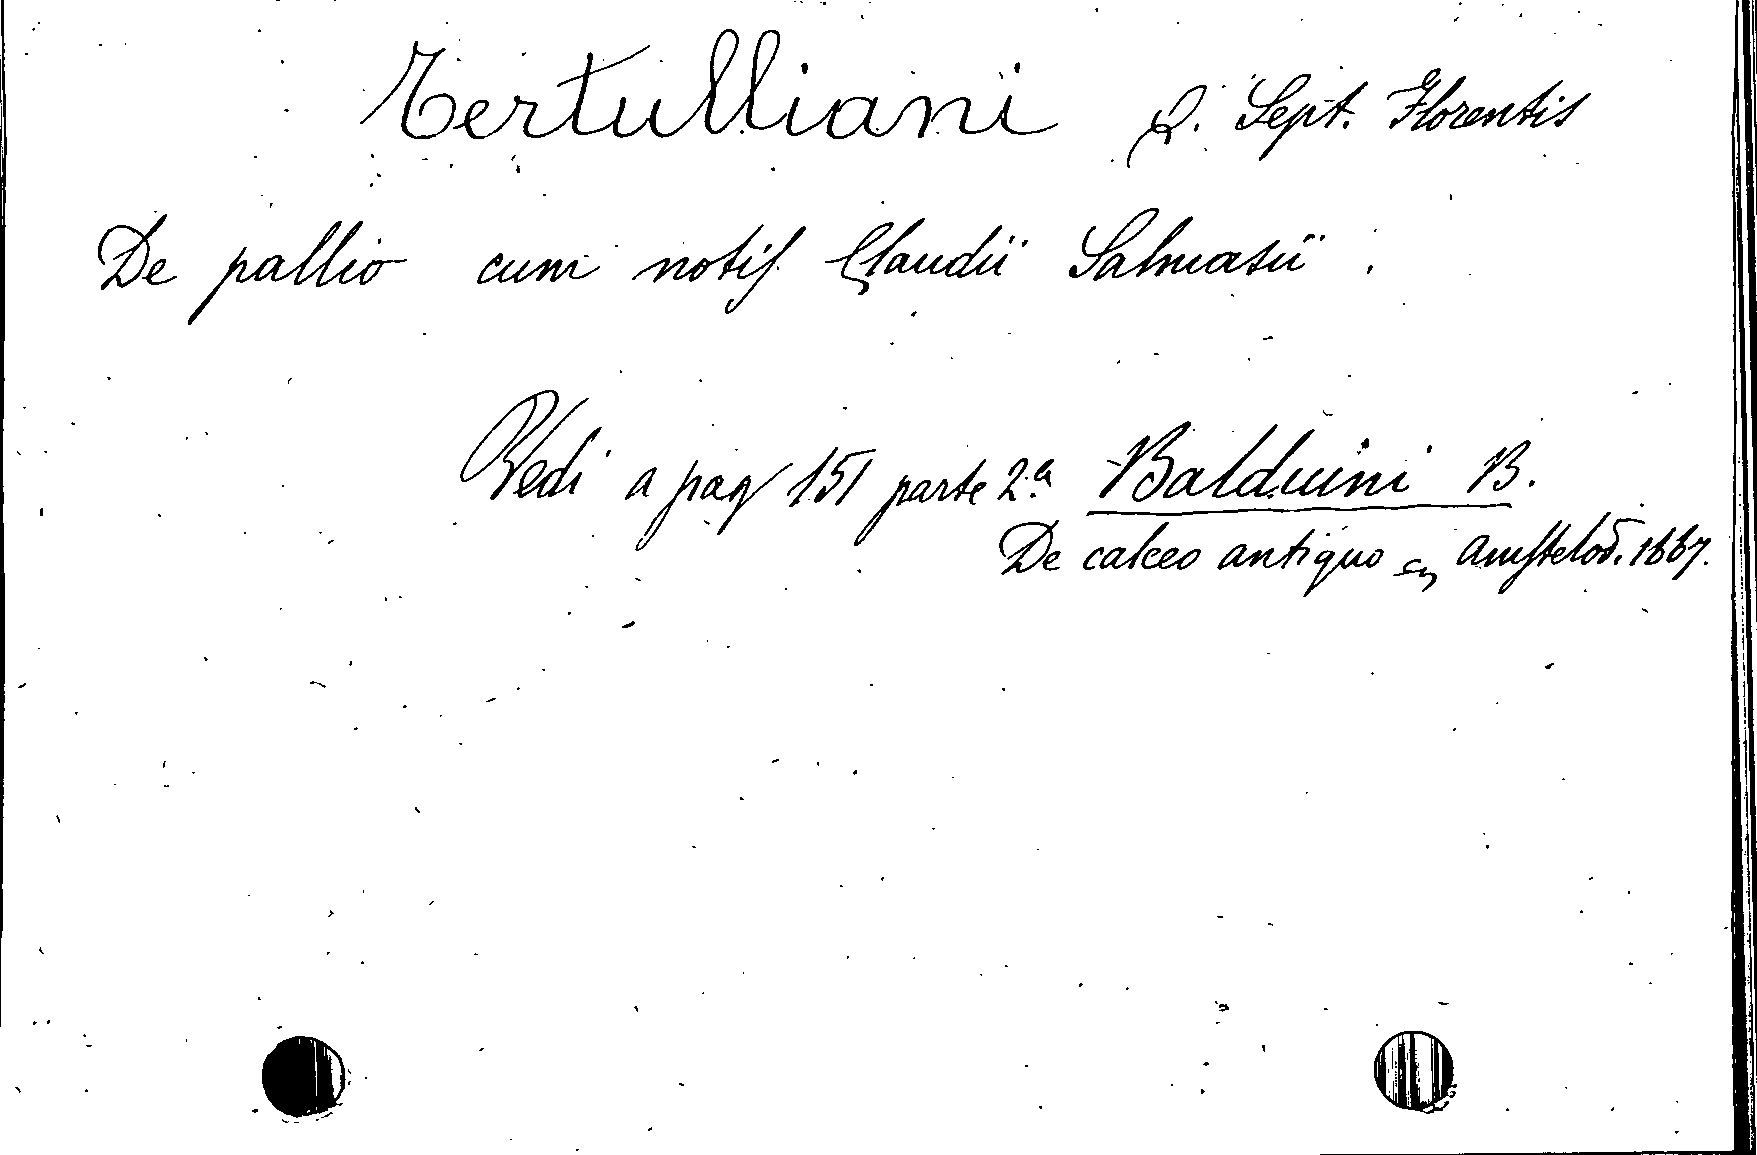 Tertulliani Q. Sept. Florentis
De pallio cum notis Claudii Salmasii.
Vedi a pag 151 parte 2.a Balduini B.
De calceo antiquo Amstelod. 1667.